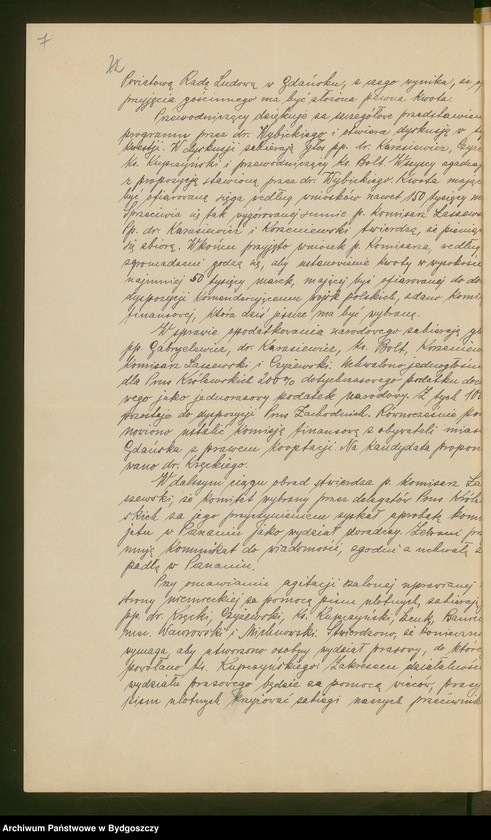 7
Powiatową Radę Ludową w Gdańsku, z czego wynika, że
przyjęcia gościnnego ma być złożona pewna kwota.
Przewodniczący dziękuje za szczegółowe przedstawien
programu przez dr. Wybickiego i otwiera dyskusję w t
kwestji. W dyskusji zabierają głos pp. dr. Karasiewicz, Czyże
ks. Kupczyński i przewodniczący ks. Bolt. Wszyscy zgadzaj
z propozycją stawioną przez dr. Wybickiego. Kwota mając
być ofiarowaną sięga według wniosków nawet 150 tysięcy m
Sprzeciwia się tak wygórowanej sumie p. komisarz Łaszews
Pp. dr. Karasiewicz i Korzeniewski twierdzą, że pieniąd
się zbiorą. W końcu przyjęto wniosek p. Komisarza, według
zgromadzeni godzą się, aby ustanowienie kwoty w wysokośc
najmniej 50 tysięcy marek, mającej być ofiarowanej do do
dyspozycji komenderującemu wojsk polskich, zdano komi
finansowej, która dziś jeszcze ma być wybraną.
W sprawie opodatkowania narodowego zabierają gł
pp. Gabrylewicz, dr. Karasiewicz, ks. Bolt, Korzeniew
komisarz Łaszewski i Czyżewski. Uchwalono jednogłośn
dla Prus Królewskich 200% dotychczasowego podatku doc
wego jako jednorazowy podatek narodowy. Z tych 100
przechodzi do dyspozycji Prus Zachodnich. Równocześnie pos
nowiono ustalić komisję finansową z obywateli mias
Gdańska z prawem kooptacji. Na kandydata propon
wano dr. Kręckiego.
W dalszym ciągu obrad stwierdza p. komisarz Ła
szewski, że komitet wybrany przez delegatów Prus Króle
skich za jego przyczynieniem zyskał aprobatę komi
jetu w Poznaniu jako wydział doradczy. Zebrani prz
mują komunikat do wiadomości, zgodni z uchwałą z
padłą w Poznaniu.
Przy omawianiu agitacji szalonej uprawianej z
strony niemieckiej za pomocą pism ulotnych, zabierają
pp. dr. Kręcki, Czyżewski, ks. Kupczyński,
mec. Wawrowski i Michnowski. Stwierdzono, że konieczn
wymaga, aby utworzono osobny wydział prasowy, do któreg
powołano ks. Kupczyńskiego. Zakresem działalności
wydziału prasowego będzie za pomocą wieców, prasy
pism ulotnych krzyżować zabiegi naszych przeciwnik
Archiwum Państwowe w Bydgoszczy